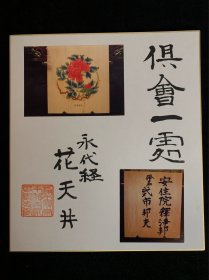 倶會一處
永代経
花天井
安住院釋浄邦